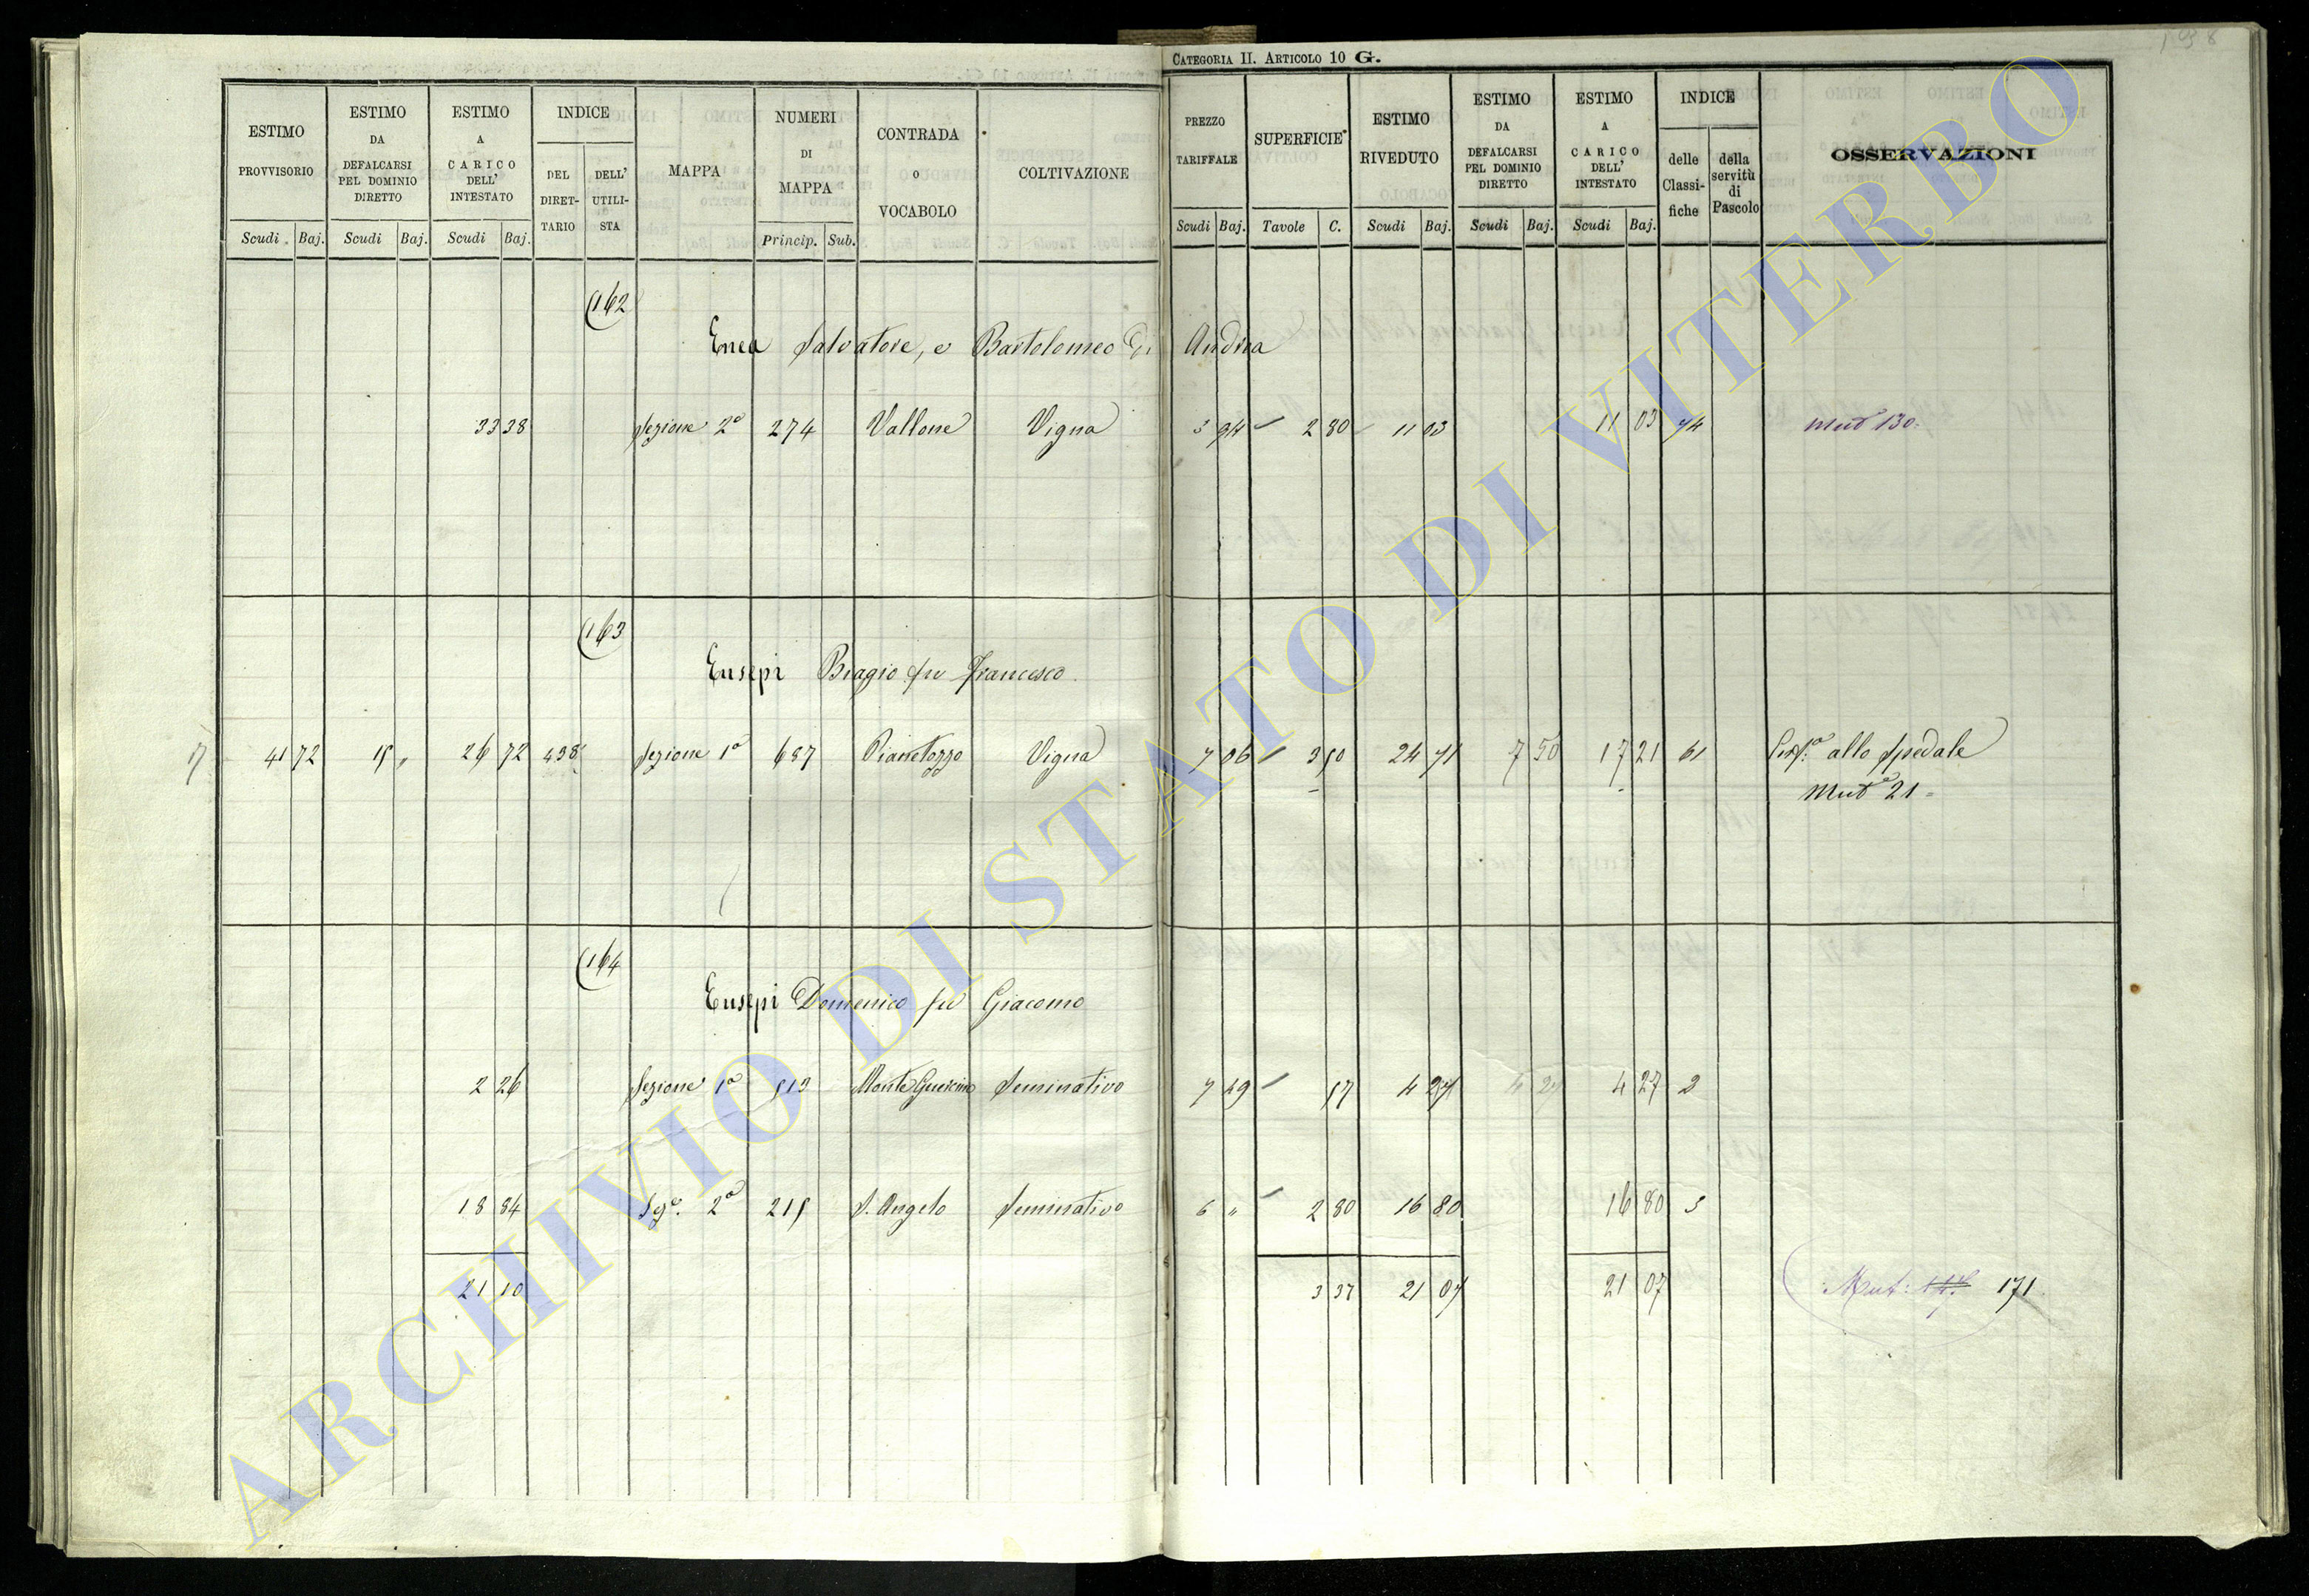 CATEGORIA II. ARTICOLO 10 G.
198
ESTIMO PROVVISORIO
ESTIMO DA DEFALCARSI PEL DOMINIO DIRETTO
ESTIMO A CARICO DELL' INTESTATO
INDICE
DEL DIRET-TARIO
DELL' UTILI-STA
MAPPA
NUMERI DI MAPPA
CONTRADA O VOCABOLO
COLTIVAZIONE
PREZZO TARIFFALE
SUPERFICIE
ESTIMO RIVEDUTO
ESTIMO DA DEFALCARSI PEL DOMINIO DIRETTO
ESTIMO A CARICO DELL' INTESTATO
INDICE
delle Classi-fiche
della servitù di Pascolo
OSSERVAZIONI
Scudi Baj. Scudi Baj. Scudi Baj. Princip. Sub. Scudi Baj. Tavole C. Scudi Baj. Scudi Baj. Scudi Baj.
162
Enea Salvatore, e Bartolomeo di Andrea
33 38 Sezione 2ª 274 Vallone Vigna 3 94 2 80 11 03 11 03 74 Mutº 130.
163
Eusepi Biagio fu Francesco
41 72 15 " 26 72 438 Sezione 1ª 687 Pianetozzo Vigna 7 06 3 50 24 71 7 50 17 21 61 allo Spedale
Mutº 21
164
Eusepi Domenico fu Giacomo
2 26 Sezione 1ª 513 Monte Guercino Seminativo 7 49 57 4 27 4 27 4 27 2
18 84 Sezº. 2ª 215 S. Angelo Seminativo 6 " 2 80 16 80 16 80 3
21 10 3 37 21 07 21 07 Mut: 171.
ARCHIVIO DI STATO DI VITERBO